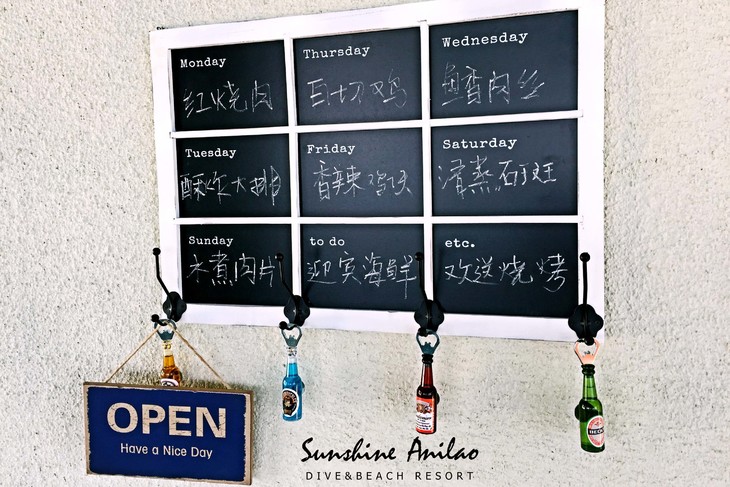 Monday
红烧肉
Thursday
百切鸡
Wednesday
鱼香肉丝
Tuesday
酥炸大排
Friday
香辣鸡
Saturday
清蒸石斑
Sunday
水煮肉片
to do
迎宾海鲜
etc.
欢送烧烤
OPEN
Have a Nice Day
Sunshine Anilao
DIVE&BEACH RESORT